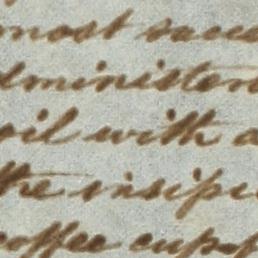 most succ
dminister
oil with a
the insipi
coffee cups